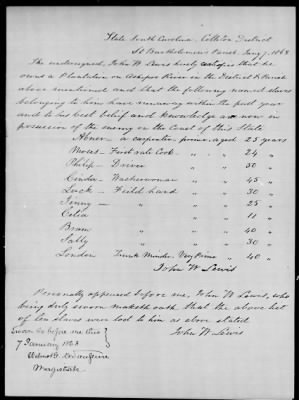 State South Carolina, Colleton District
St Bartholomews Parish Jany 7, 1863
The undersigned, John W Lewis hereby certifies that he
owns a Plantation on Ashepoo River in the District & Parish
above mentioned and that the following named slaves
belonging to him have runaway within the past year
and to his best belief and knowledge are now in
possession of the enemy on the Coast of this State
Abner — a carpenter - prime - aged 25 years
Moses — Field and Cook — " " 24 "
Philip — Driver " " 50 "
Cinda — Washerwoman " " 45 "
Luck — Field hand " " 30 "
Jenny — " " " 25 "
Celia " " " 11 "
Bram " " " 40 "
Sally " " " 30 "
London Trunk Minder Very Prime " 40 "
John W Lewis
Personally appeared before me, John W Lewis, who
being duly sworn maketh oath, that the above list
of ten slaves were lost to him as above stated
Sworn to before me this
John W Lewis
7 January 1863
Magistrate